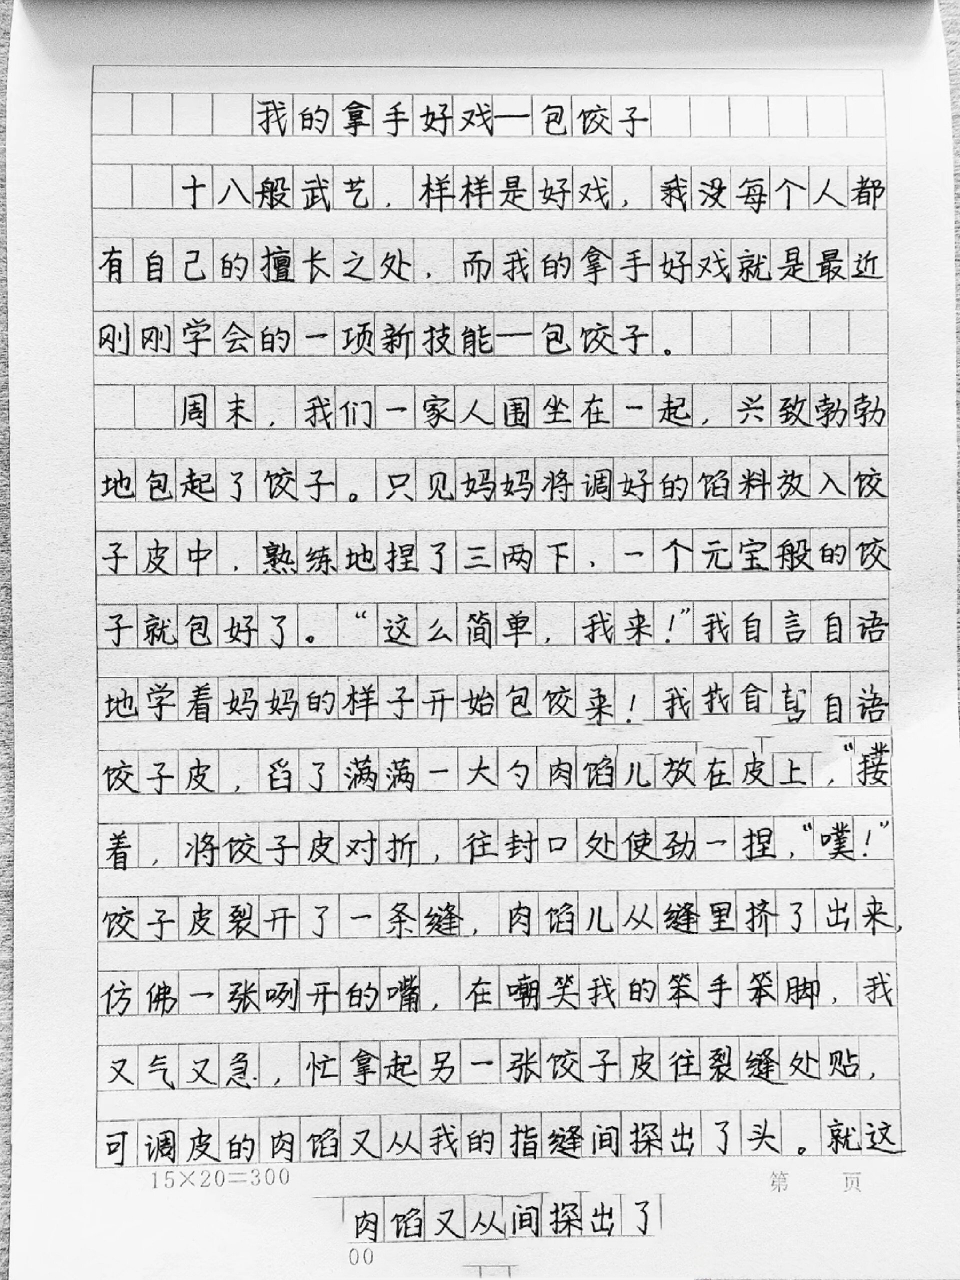 我的拿手好戏一包饺子
十八般武艺，样样是好戏，我没每个人都
有自己的擅长之处，而我的拿手好戏就是最近
刚刚学会的一项新技能一包饺子。
周末，我们一家人围坐在一起，兴致勃勃
地包起了饺子。只见妈妈将调好的馅料放入饺
子皮中，熟练地捏了三两下，一个元宝般的饺
子就包好了。“这么简单，我来！”我自言自语
地学着妈妈的样子开始包饺来！我我自言自语
饺子皮，舀了满满一大勺肉馅儿放在皮上，“搂
着，将饺子皮对折，往封口处使劲一捏，“噗！”
饺子皮裂开了一条缝，肉馅儿从缝里挤了出来，
仿佛一张咧开的嘴，在嘲笑我的笨手笨脚，我
又气又急，忙拿起另一张饺子皮往裂缝处贴，
可调皮的肉馅又从我的指缝间探出了头。就这
15×20=300 第 页
肉馅又从间探出了
00